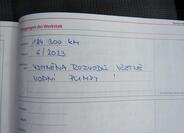 Eintragungen der Werkstatt
184 300 km
6/2023
VÝMĚNA ROZVODŮ VČETNĚ
VODNÍ PUMPY !